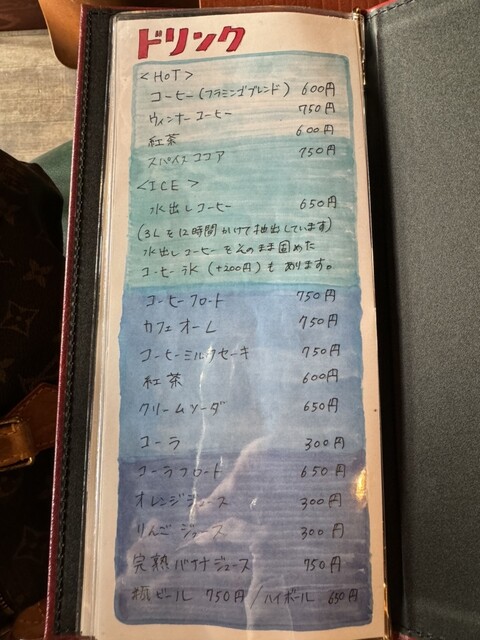 ドリンク
<HOT>
コーヒー(フラミンゴブレンド) 600円
ウィンナーコーヒー 750円
紅茶 600円
スパイスココア 750円
<ICE>
水出しコーヒー 650円
(3Lを12時間かけて抽出しています)
水出しコーヒーをそのまま固めた
コーヒー氷(+200円)もあります。
コーヒーフロート 750円
カフェオーム 750円
コーヒーミルクセーキ 750円
紅茶 600円
クリームソーダ 650円
コーラ 300円
コーラフロート 650円
オレンジジュース 300円
りんごジュース 300円
完熟パイナジュース 750円
瓶ビール 750円/ハイボール 650円